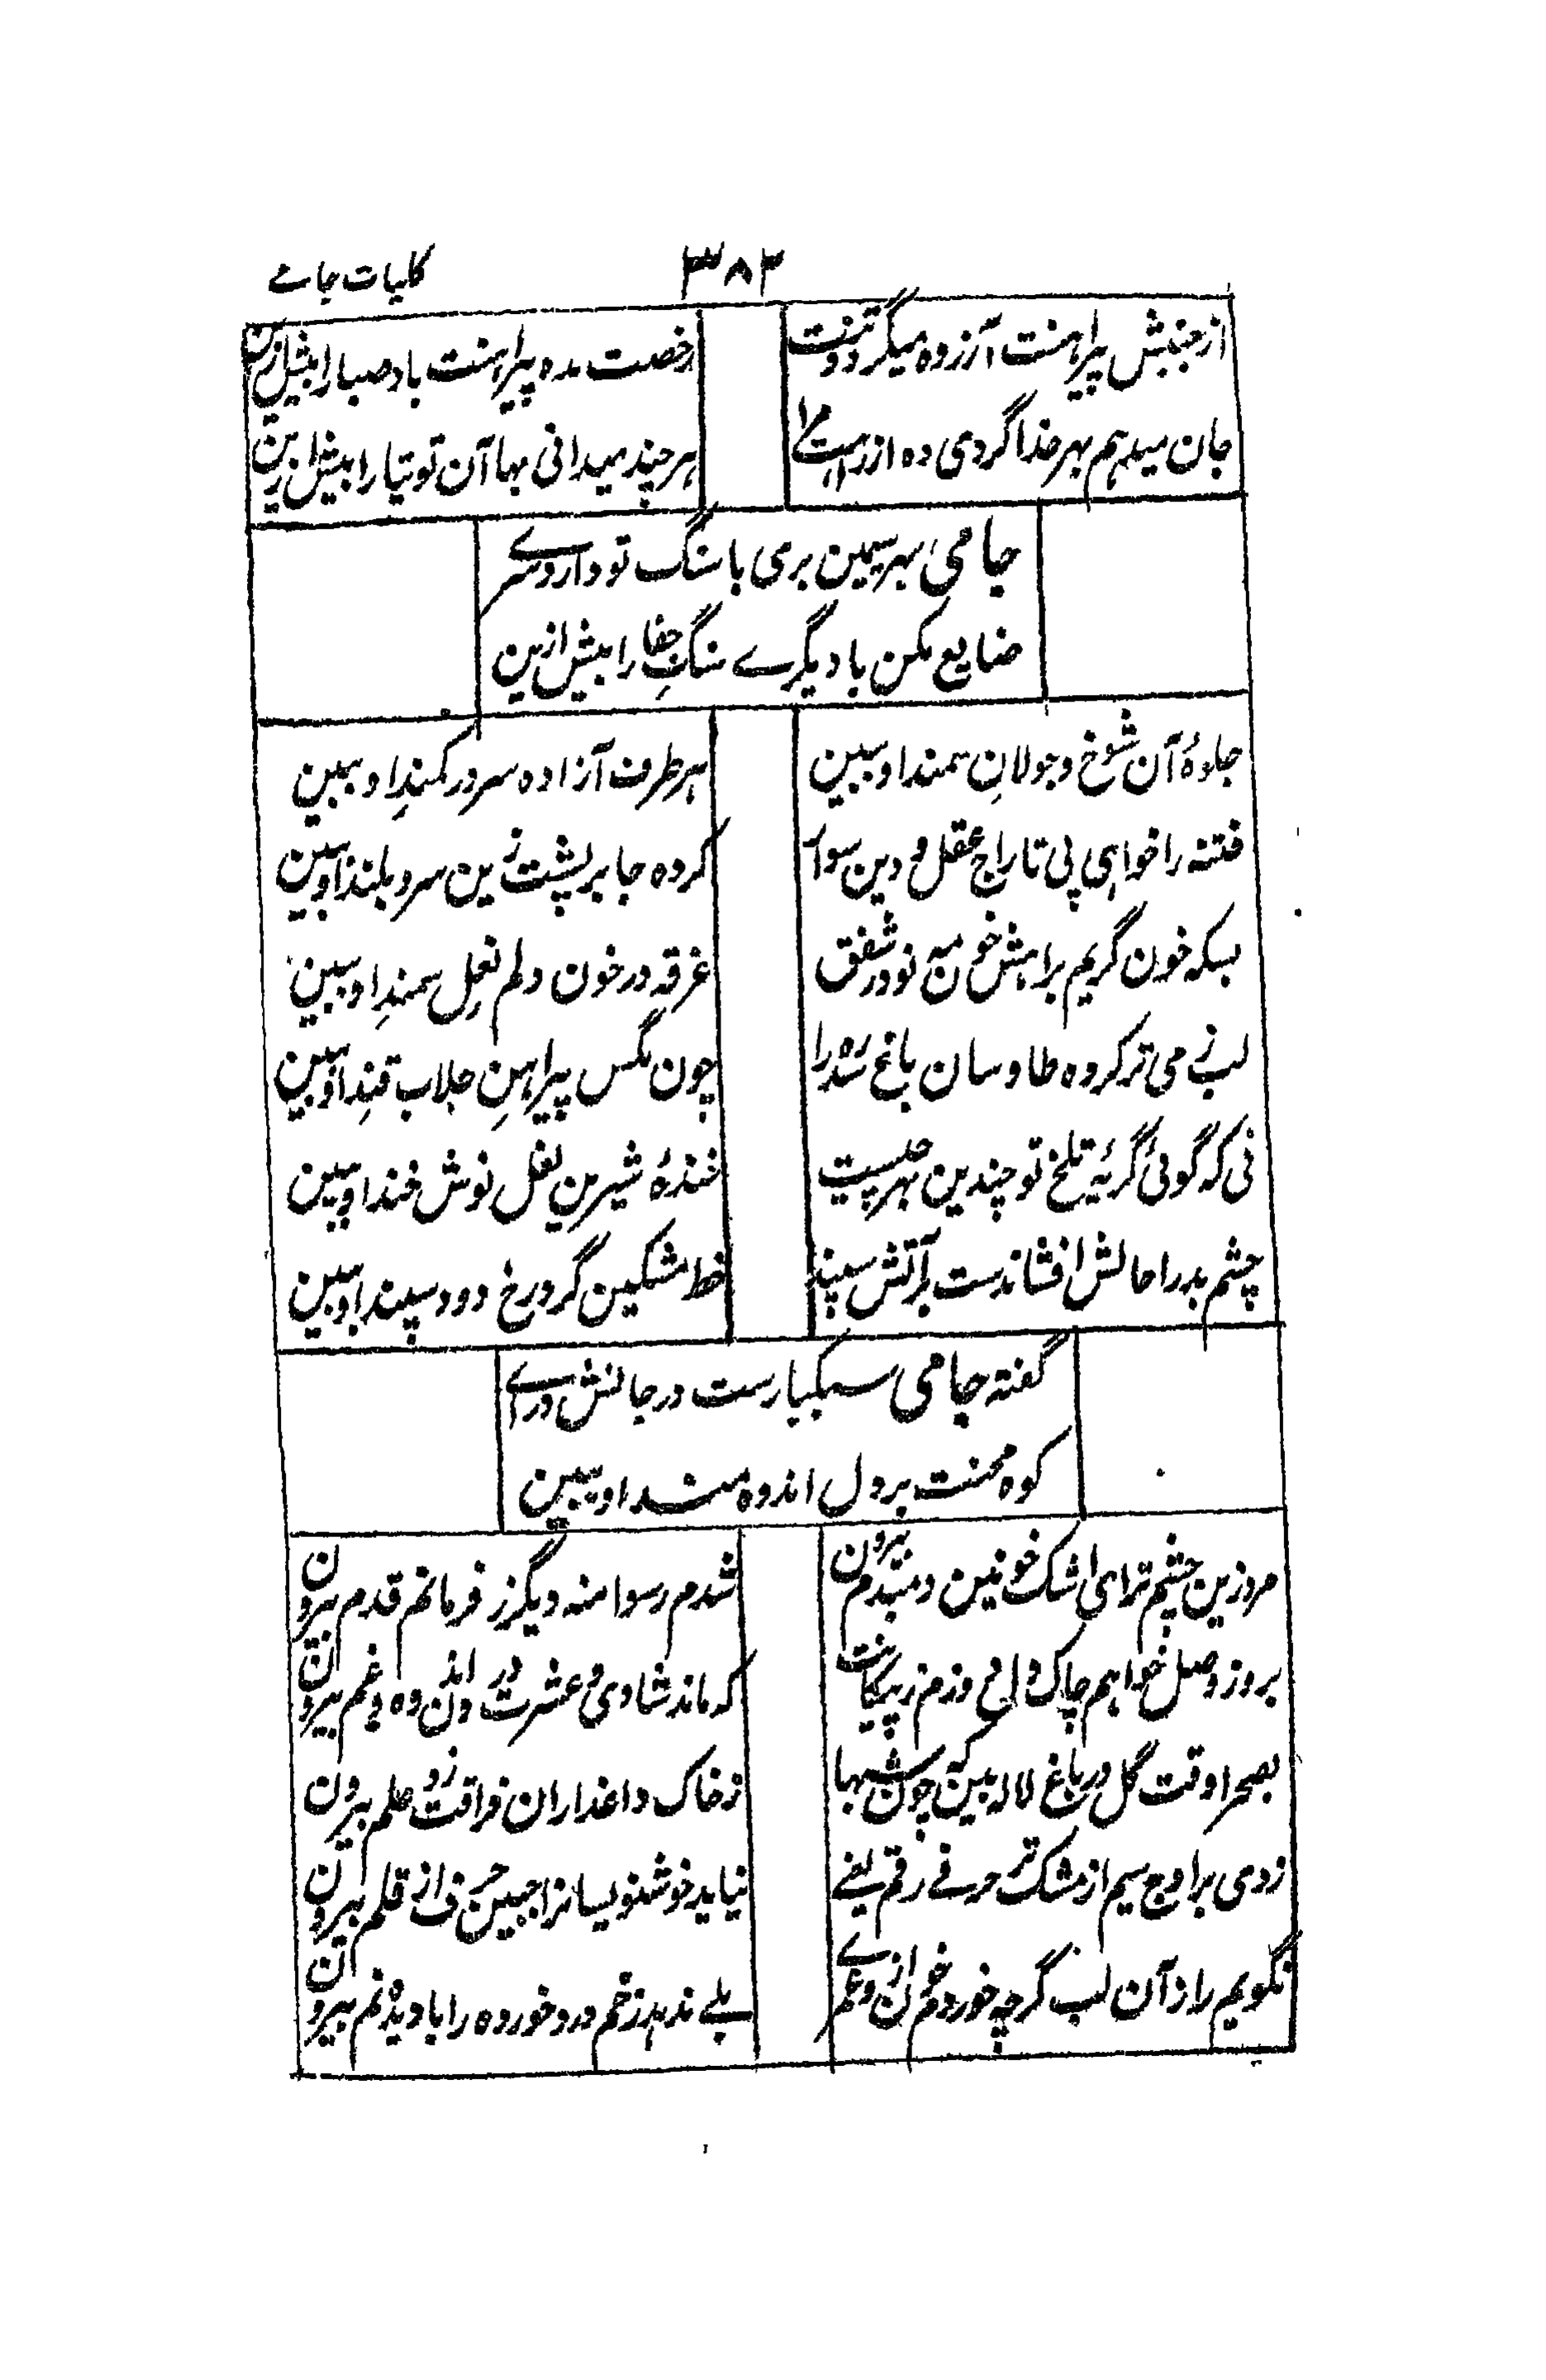 ۳۸۳
کلیات جامے
از جنبش پیراهنت آزرده میگردد تنت
رخصت مده پیراهنت باد صبا را بیش ازین
جان میدهم بهر خدا گردی ده از راهت مرا
هر چند میدانی بها آن توتیا را بیش ازین
جامی بهر سیمین بری با سنگ تو دارد سرے
ضایع مکن با دیگرے سنگِ جفا را بیش ازین
جلوۀ آن شوخ و جولانِ سمند او ببین
هر طرف آزاده سر در کمندِ او ببین
فتنه را خواهی پی تاراج عقل و دین سوار
کرده جا بر پشت زین سرو بلند او ببین
بسکه خون گریم براهش خون مه نو در شفق
غرقه در خون دلم نعلِ سمندِ او ببین
لب ز می تر کرده طاوسان باغ سدره را
چون مگس پیراهنِ جلاب قندِ او ببین
نی که گوئی گریۀ تلخ تو چندین بهر چیست
خندۀ شیرین لعل نوش خند او ببین
چشم بد را حالش افشاندست بر آتش سپند
خط مشکین گرد رخ دود سپند او ببین
گفتۀ جامی سبکبارست در جانش درآے
کوه محنت بر دل اندوه مند او ببین
مروزین چشم تر ای اشک خونین دمبدم بیرون
شدم رسوا منه دیگر ز فرمانم قدم بیرون
بروز وصل خواهم چاک دل دوزم ز پیکانت
که ماند شادی و عشرت درون اندوه و غم بیرون
بصحرا وقت گل در باغ لاله بین که چون شبها
ز خاک داغداران فراقت زد علم بیرون
زدی بر اوج سیم از مشک تر حرفے رقم یعنے
نیاید خوشنویسانرا چنین حرفی از قلم بیرون
نگویم راز آن لب گرچه خوردم خون ازو عمرے
بلے ندهد زخم درد خورده را با دیده نم بیرون